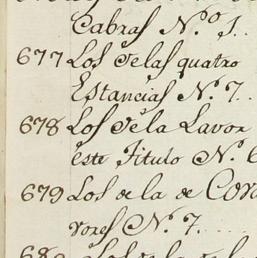 Cabras N.º 1.
677 Los de las quatro
Estancias N.º 7.
678 Los de la Lavor
este Titulo N.º 6
679 Los de la de
N.º 7.